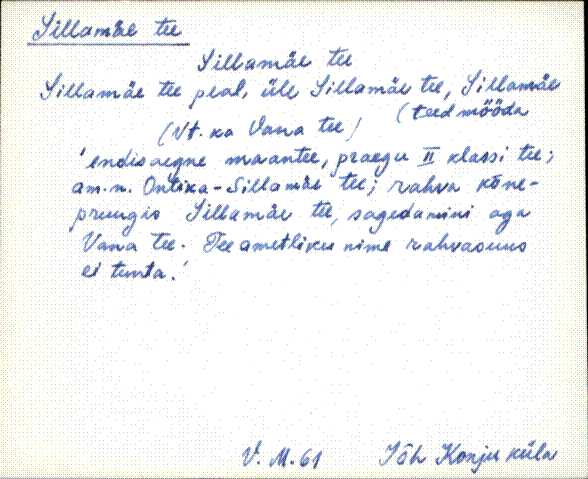 Sillamäe tee
Sillamäe tee
Sillamäe tee peal, üle Sillamäe tee, Sillamäe
(teed mööda
(Vt. ka Vana tee)
'endisaegne maantee, praegu II klassi tee;
am.n. Ontika-Sillamäe tee; rahva kõne-
pruugis Sillamäe tee, sagedamini aga
Vana tee. Tee ametlikku nime rahvasuus
ei tunta.'
V. M. 61 Jõh Konju küla